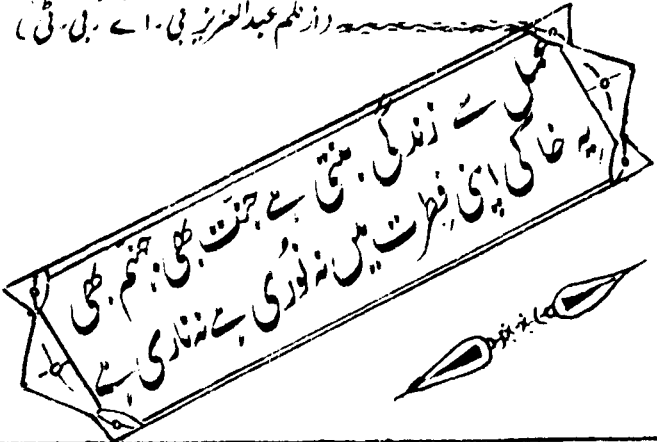 (از قلم عبدالعزیز بی۔اے۔بی۔ٹی)
عمل سے زندگی بنتی ہے جنت بھی، جہنم بھی
یہ خاکی اپنی فِطرت میں نہ نُوری ہے نہ ناری ہے